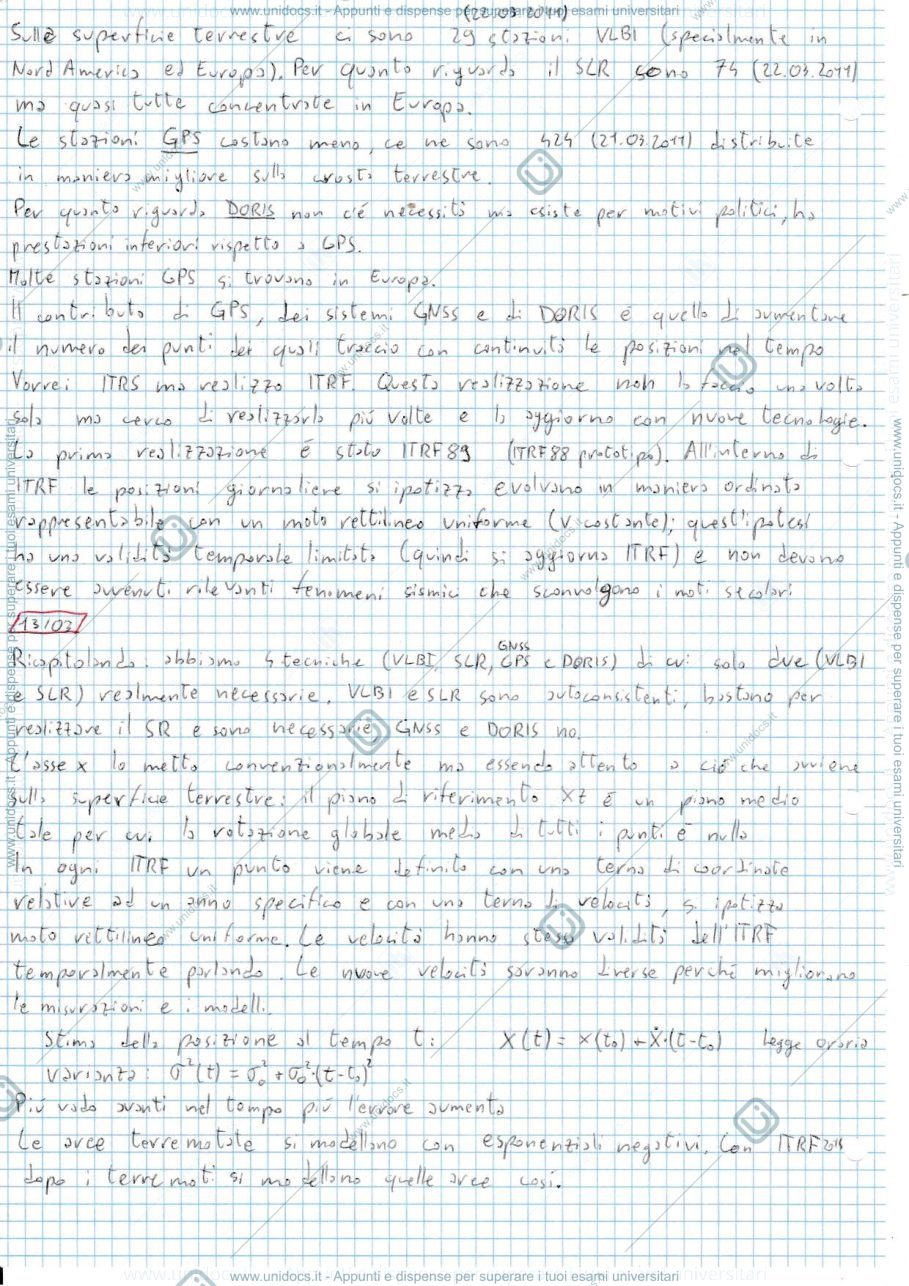 www.unidocs.it - Appunti e dispense per superare i tuoi esami universitari
(22.03.2011)
Sulle superficie terrestre ci sono 29 stazioni VLBI (specialmente in
Nord America ed Europa). Per quanto riguarda il SLR sono 74 (22.03.2011)
ma quasi tutte concentrate in Europa.
Le stazioni GPS costano meno, ce ne sono 424 (21.03.2011) distribuite
in maniera migliore sulla crosta terrestre.
Per quanto riguarda DORIS non c'é necessità ma esiste per motivi politici, ha
prestazioni inferiori rispetto a GPS.
Molte stazioni GPS si trovano in Europa.
Il contributo di GPS, dei sistemi GNSS e di DORIS é quello di aumentare
il numero dei punti dei quali traccio con continuità le posizioni nel tempo
Vorrei ITRS ma realizzo ITRF. Questa realizzazione non la faccio una volta
sola ma cerco di realizzarla piú volte e la aggiorno con nuove tecnologie.
La prima realizzazione é stata ITRF89 (ITRF88 prototipo). All'interno di
ITRF le posizioni giornaliere si ipotizza evolvano in maniera ordinata
rappresentabile con un moto rettilineo uniforme (v costante); quest'ipotesi
ha una validità temporale limitata (quindi si aggiorna ITRF) e non devono
essere avvenuti rilevanti fenomeni sismici che sconvolgano i moti secolari
13/03
Ricapitolando: abbiamo 4 tecniche (VLBI, SLR, GPS e DORIS) di cui solo due (VLBI
GNSS
e SLR) realmente necessarie. VLBI e SLR sono autoconsistenti, bastano per
realizzare il SR e sono necessarie, GNSS e DORIS no.
L'asse x lo metto convenzionalmente ma essendo attento a ciò che avviene
sulla superficie terrestre: il piano di riferimento XZ é un piano medio
tale per cui la rotazione globale media di tutti i punti é nulla
In ogni ITRF un punto viene definito con una terna di coordinate
relative ad un anno specifico e con una terna di velocità, si ipotizza
moto rettilineo uniforme. Le velocità hanno stessa validità dell'ITRF
temporalmente parlando. Le nuove velocità saranno diverse perché migliorano
le misurazioni e i modelli.
Stima della posizione al tempo t: X(t) = x(t₀) + Ẋ·(t-t₀) legge oraria
varianza: σ²(t) = σ₀² + σ₀²·(t-t₀)²
Piú vado avanti nel tempo piú l'errore aumenta
Le aree terremotate si modellano con esponenziali negativi. Con ITRF2014
dopo i terremoti si modellano quelle aree cosi.
www.unidocs.it - Appunti e dispense per superare i tuoi esami universitari